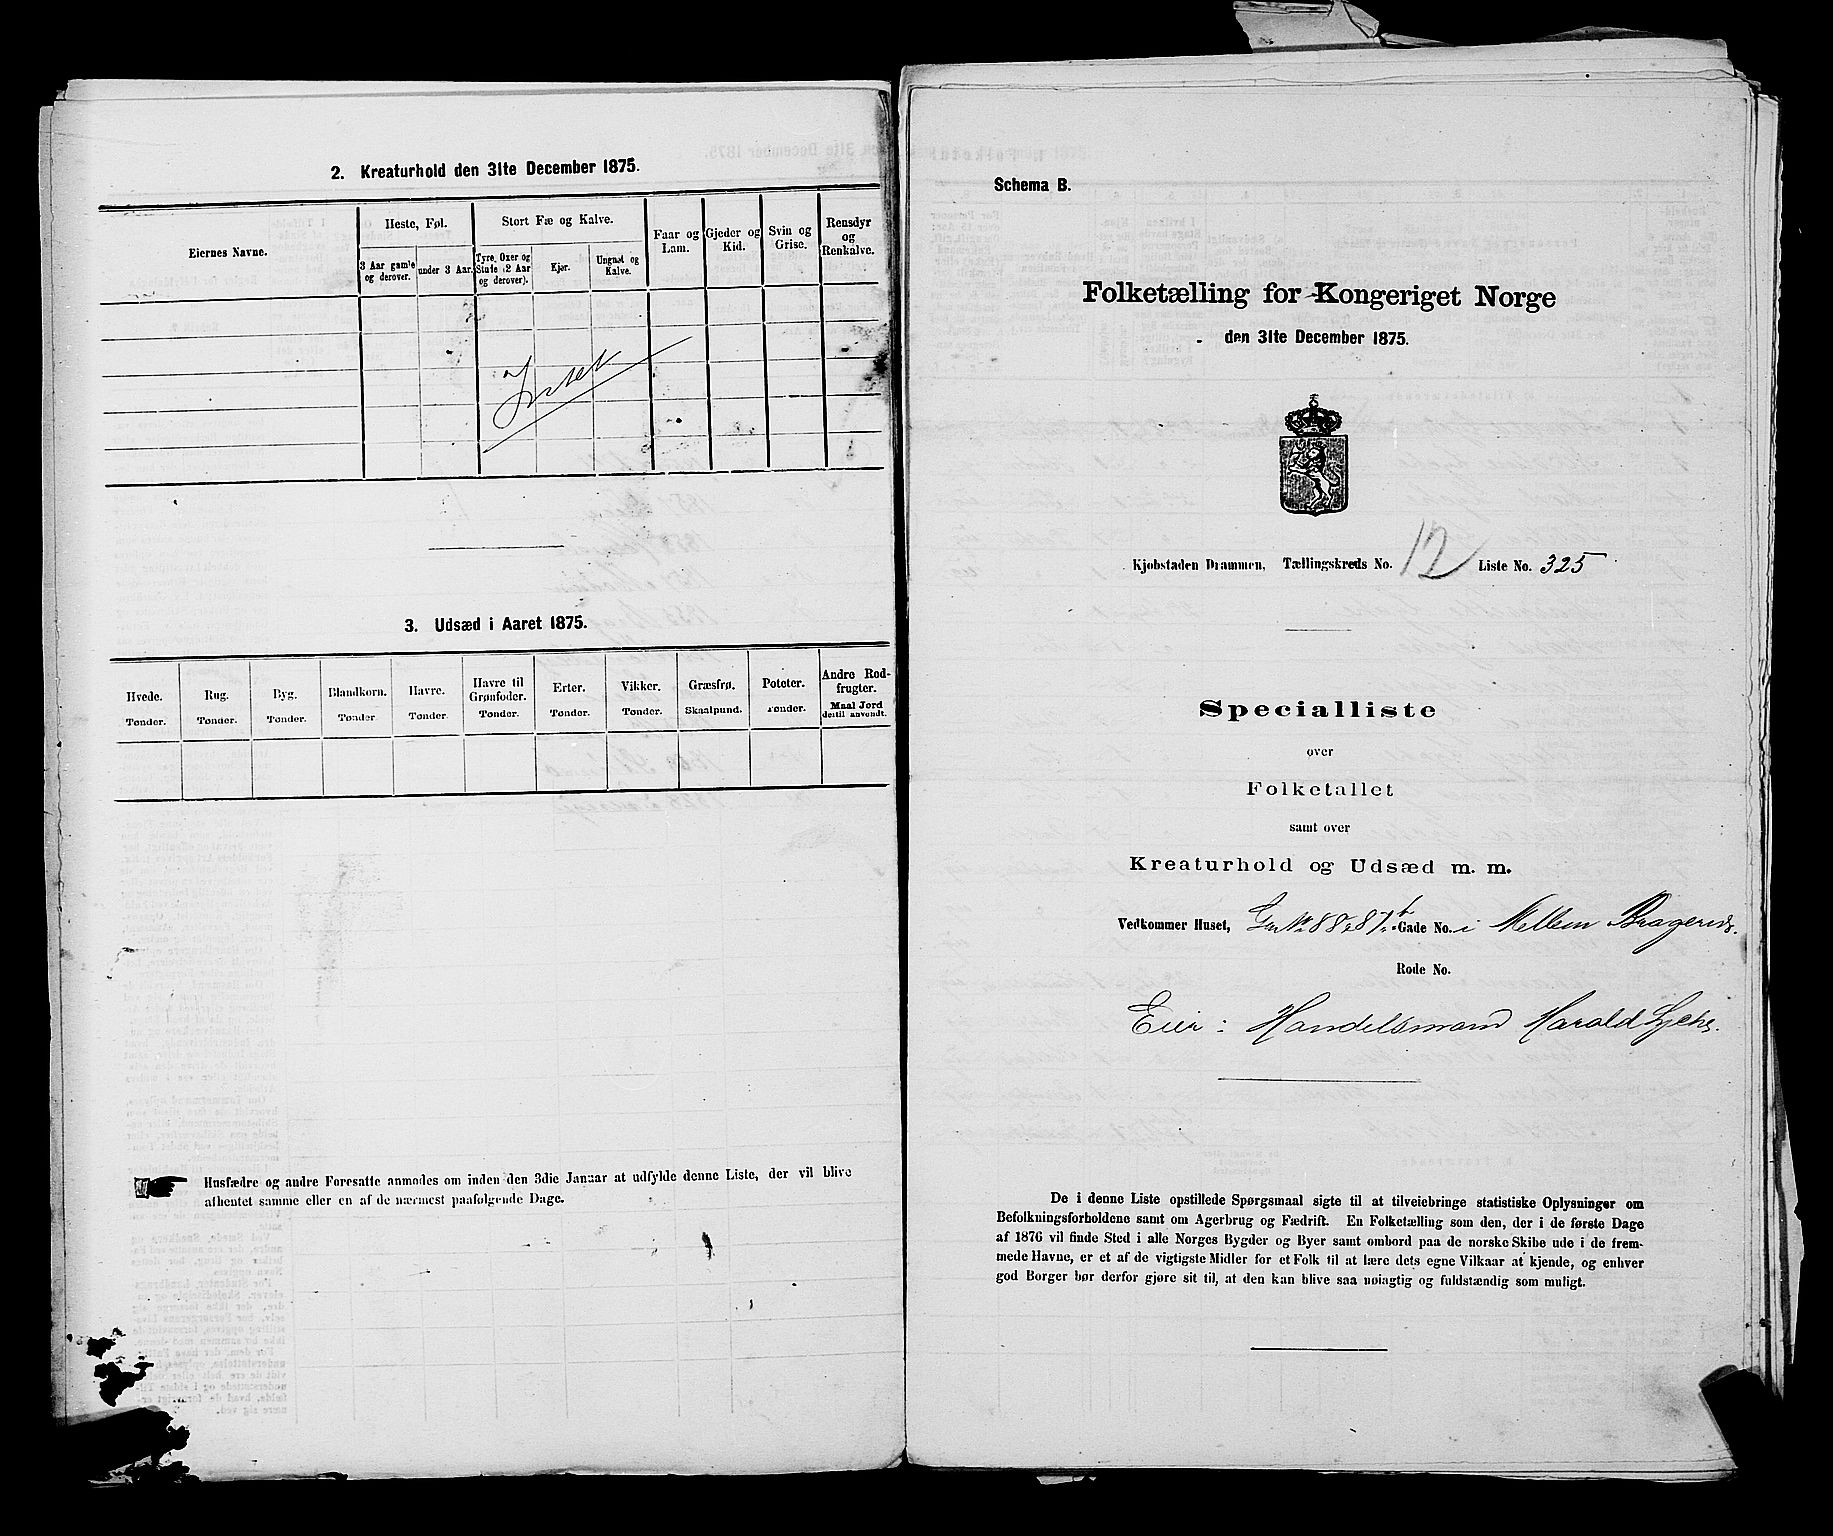 2. Kreaturhold den 31te December 1875.
Eiernes Navne.
Heste, Føl.
Stort Fæ og Kalve.
Faar og Lam.
Gjeder og Kid.
Svin og Grise.
Rensdyr og Renkalve.
3 Aar gamle og derover.
under 3 Aar.
Tyre, Oxer og Stude (2 Aar og derover).
Kjør.
Ungnøt og Kalve.
3. Udsæd i Aaret 1875.
Hvede.
Rug.
Byg.
Blandkorn.
Havre.
Havre til Grønfoder.
Erter.
Vikker.
Græsfrø.
Poteter.
Andre Rodfrugter.
Tønder.
Tønder.
Tønder.
Tønder
Tønder.
Tønder.
Tønder.
Tønder.
Skaalpund.
Tønder.
Maal Jord dertil anvendt.
Husfædre og andre Foresatte anmodes om inden den 3die Januar at udfylde denne Liste, der vil blive
afhentet samme eller en af de nærmest paafølgende Dage.
Schema B.
Folketælling for Kongeriget Norge
den 31te December 1875.
Kjøbstaden Drammen, Tællingskreds No. 12 Liste No. 325
Specialliste
over
Folketallet
samt over
Kreaturhold og Udsæd m. m.
Vedkommer Huset, Gade No. i Mellem Bragernes.
Rode No.
Eier: Handelsmand Harald Lyche.
De i denne Liste opstillede Spørgsmaal sigte til at tilveiebringe statistiske Oplysninger om
Befolkningsforholdene samt om Agerbrug og Fædrift. En Folketælling som den, der i de første Dage
af 1876 vil finde Sted i alle Norges Bygder og Byer samt ombord paa de norske Skibe ude i de frem-
mede Havne, er et af de vigtigste Midler for et Folk til at lære dets egne Vilkaar at kjende, og enhver
god Borger bør derfor gjøre sit til, at den kan blive saa nøiagtig og fuldstændig som muligt.